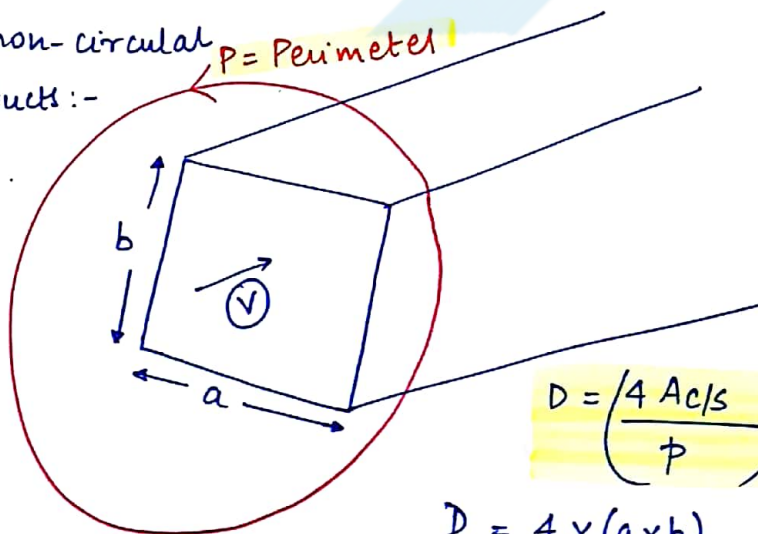 non-circular
ucts :-
P = Perimeter
b
V
a
D = (4 Ac/s / P)
D = 4 x (a x b)